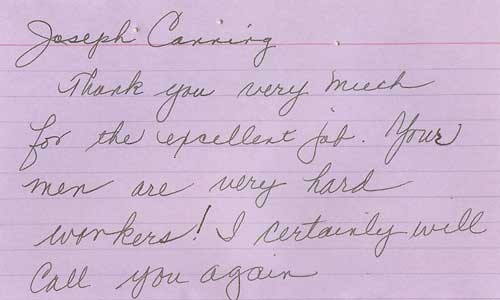 Joseph Canning
Thank you very much
for the excellent job. Your
men are very hard
workers! I certainly will
Call you again